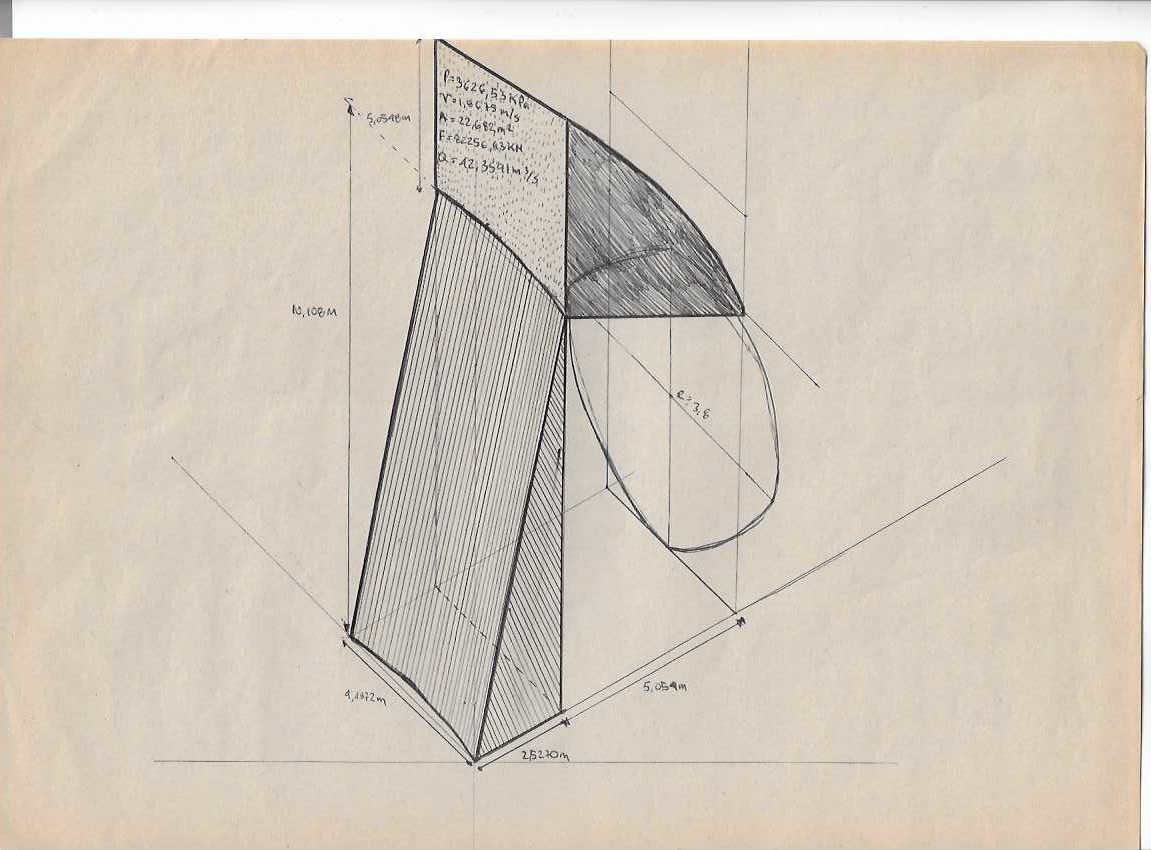 P=3626,53KPa
V=1,8679m/s
A=22,682m²
F=82256,93KN
Q=42,3591m³/s
5,0548m
10,108M
R=3,8
4,4872m
2,5270m
5,054m